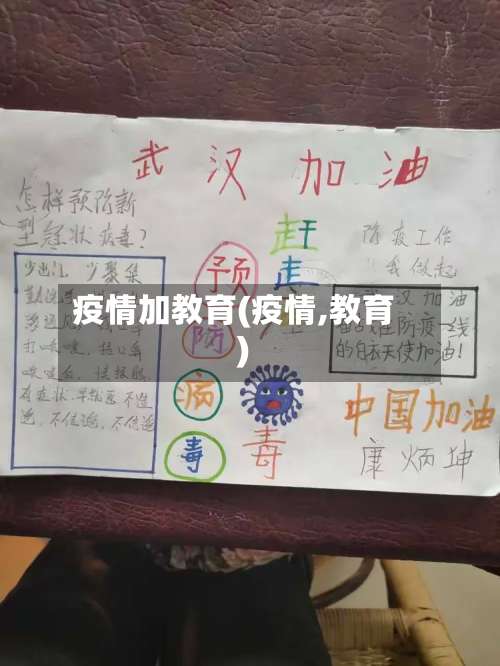 武汉加油
怎样预防新
型冠状病毒?
少出门,少聚集
有症状,早就医不造
谣,不信谣,不传谣
预
防
病
毒
赶
走
毒
防疫工作
我做起
汉加油
防疫一线
的白衣天使加油!
中国加油
康炳坤
疫情加教育(疫情,教育
)